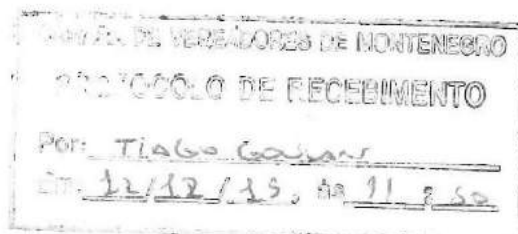 CÂMARA DE VEREADORES DE MONTENEGRO
PROTOCOLO DE RECEBIMENTO
Por: TIAGO
Em: 12/12/15, às 11:50